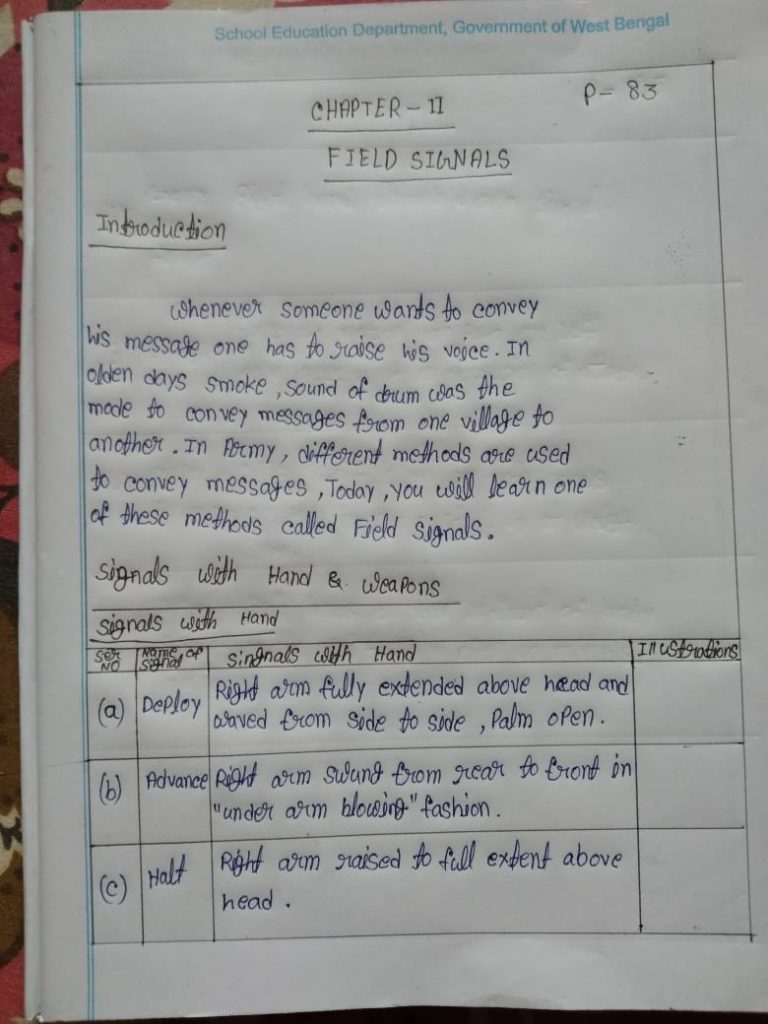 School Education Department, Government of West Bengal
P- 83
CHAPTER - II
FIELD SIGNALS
Introduction
Whenever someone wants to convey
his message one has to raise his voice. In
olden days smoke, sound of drum was the
mode to convey messages from one village to
another. In Army, different methods are used
to convey messages, Today, you will learn one
of these methods called Field signals.
Signals with Hand & Weapons
Signals with Hand
Ser NO Name of Signal Singnals with Hand Illustrations
(a) Deploy Right arm fully extended above head and
waved from side to side, Palm open.
(b) Advance Right arm swung from rear to front in
"under arm blowing" fashion.
(c) Halt Right arm raised to full extent above
head.